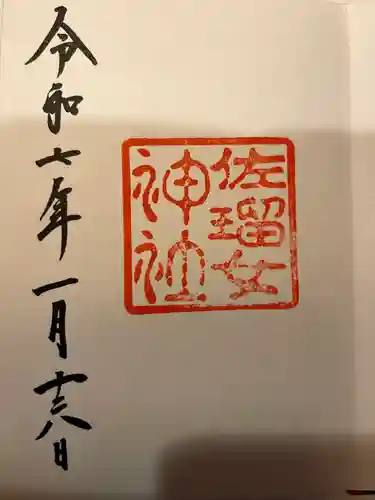 佐瑠女
神社
令和七年一月十八日